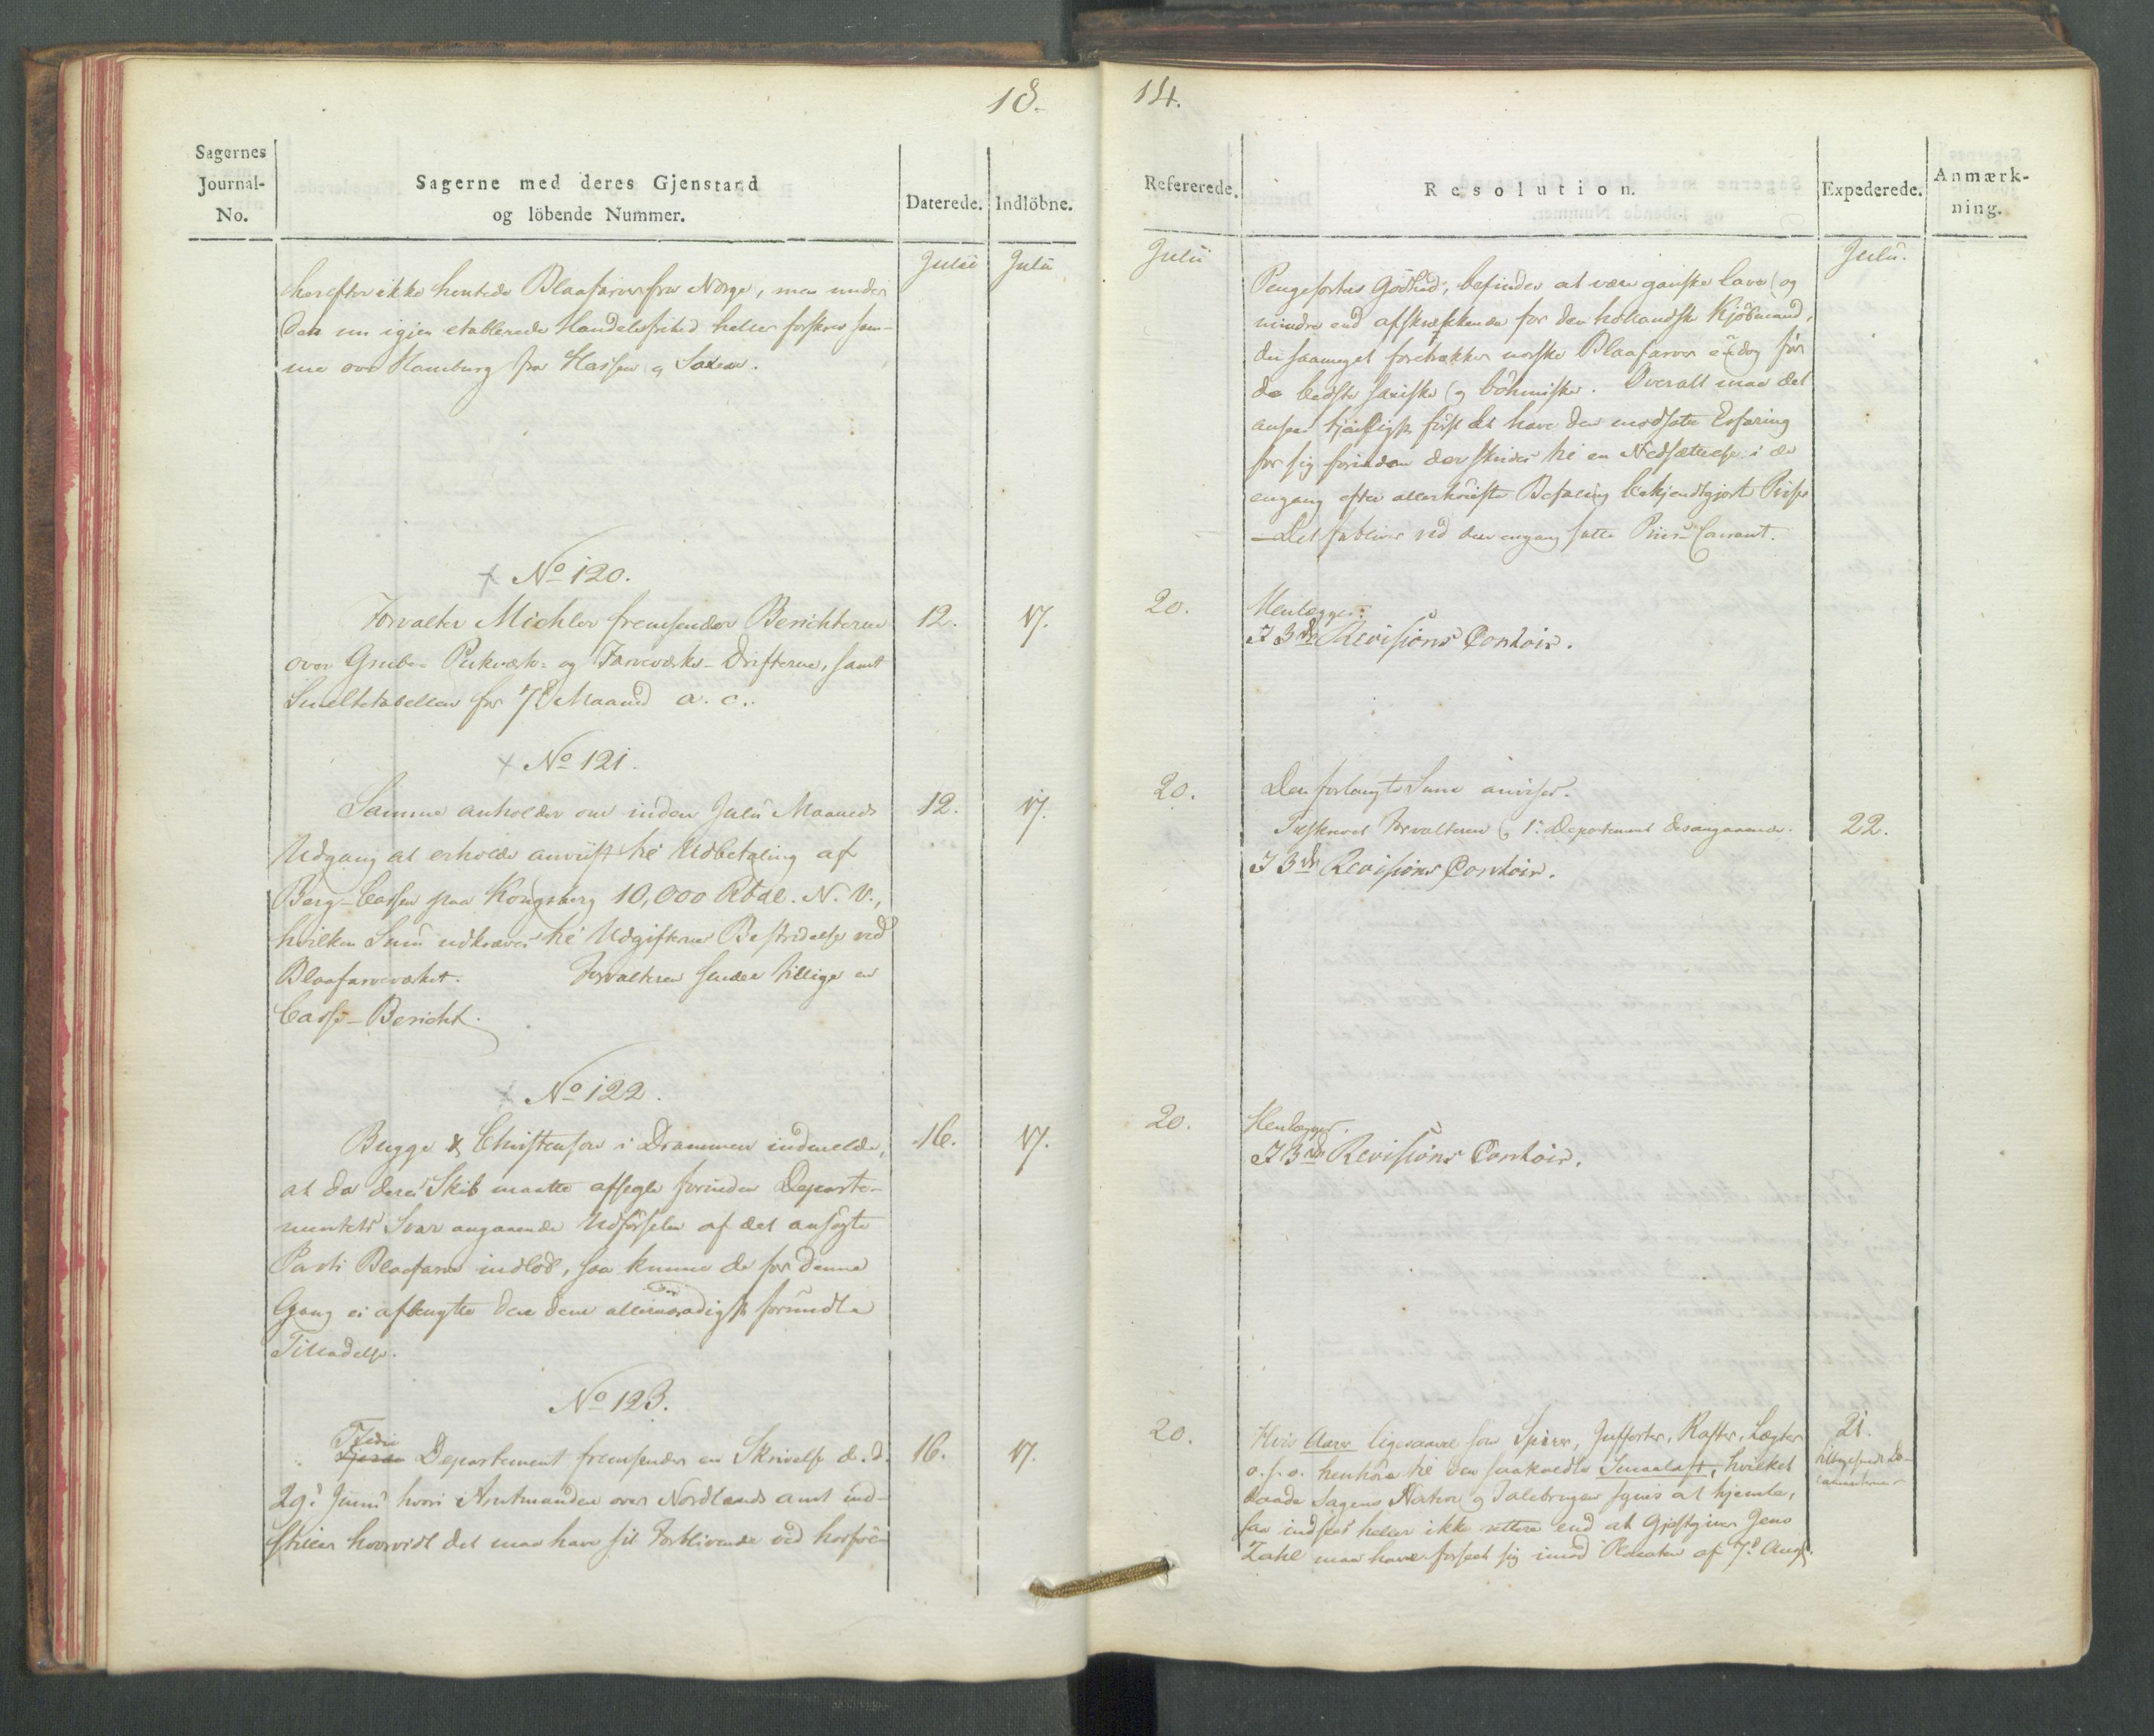 13.
Sagernes
Journal-
No.
Sagerne med deres Gjenstand
og löbende Nummer.
Daterede.
Indlöbne.
Julii
Julii
herefter ikke hentede Blaafarver fra Norge, men under
den nu igjen etablerede Handelsfrihed heller forskrev sam-
me over Hamburg fra Hessen og Saxen.
No 120.
Forvalter Michlor fremsender Berichterne
12.
17.
over Grube- Pukværks- og Farveværks-Drifterne, samt
Smeltetabellen for 7de Maaned a. c.
No 121.
Samme anholder om inden Julii Maaneds
12.
17.
Udgang at erholde anviist til Udbetaling af
Berg-Cassen paa Kongsberg 10,000 Rbdl. N. V.,
hvilken Sum udkræves til Udgifternes Bestridelse ved
Blaafarveværket. Forvalteren sender tillige en
Casse-Bericht.
No 122.
Bugge & Christensen i Drammen indmelde,
16.
17.
at da deres Skib maatte afsegle forinden Departe-
mentets Svar angaaende Udförselen af det ansögte
Parti Blaafarve indlöb, saa kunne de for denne
Gang ei afbenytte den dem allernaadigst forundte
Tilladelse.
No 123.
Tredie
Departement fremsender en Skrivelse d. d.
16.
17.
29de Junii hvori Amtmanden over Nordlands amt ind-
stiller hvorvidt det maa have sit Forblivende ved
14.
Refererede.
Resolution.
Expederede.
Anmærk-
ning.
Julii
Julii.
Pengesortes Godhed, befindes at være ganske lave og
mindre end afskrækkende for den hollandske Kjöbmand,
der saameget foretrækker norske Blaafarver endog for
de bedste saxiske og böhmiske. Overalt maa det
ansees först at have den modsatte Erfaring
for sig forinden der skrides til en Nedsættelse i de
engang efter allerhöieste Befaling bekjendtgjorte Priser
Det forbliver ved den engang satte Priis-Courant.
20.
Henlægges.
I 3die Revisions Contoir.
20.
Den forlangte Sum anvises.
Tilskrevet Forvalteren og 1ste Departement desangaaende.
22.
I 3die Revisions Contoir.
20.
Henlægges.
I 3die Revisions Contoir.
20.
Hvis Aarer ligesaavel som Spirer, Jufforter, Rafter, Lægter
21.
o. s. v. henhöre til den saakaldte Smaalast, hvilket
tilbagesendt Do-
baade Sagens Natur og Talebrugen synes at hjemle,
cumenterne
saa indsees heller ikke rettere end at Gjæstgiver Jens
Zahl maa have forseet sig imod Placaten af 7de Aug.